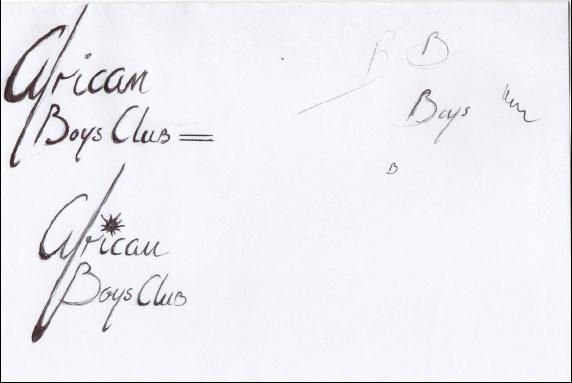 African
Boys Club
African
Boys Club
B
B
Boys
B